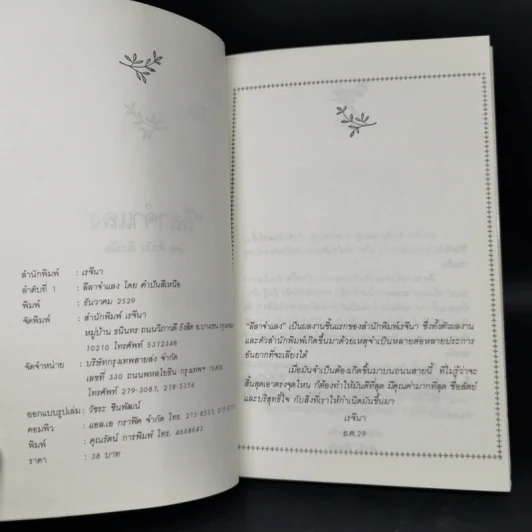 สำนักพิมพ์ : เรจีนา
ลำดับที่ 1 : ลีลาจำแลง โดย คำปันสีเหนือ
พิมพ์ : ธันวาคม 2529
จัดพิมพ์ : สำนักพิมพ์ เรจีนา
หมู่บ้าน ธนินทร ถนนวิภาวดี-รังสิต อ.บางเขน กรุงเทพฯ
10210 โทรศัพท์ 5372348
จัดจำหน่าย : บริษัทกรุงเทพสายส่ง จำกัด
เลขที่ 330 ถนนพหลโยธิน กรุงเทพฯ 10400
โทรศัพท์ 279-3087, 278-5356
ออกแบบรูปเล่ม : วัชระ ชินพัฒน์
คอมพิว : แอล.เอ กราฟิค จำกัด โทร.
พิมพ์ : คุณรัตน์ การพิมพ์ โทร. 4668642
ราคา : 38 บาท
"ลีลาจำแลง" เป็นผลงานชิ้นแรกของสำนักพิมพ์เรจีนา ซึ่งทั้งตัวผลงาน
และตัวสำนักพิมพ์เกิดขึ้นมาด้วยเหตุจำเป็นหลายต่อหลายประการ
อันยากที่จะเลี่ยงได้
เมื่อมันจำเป็นต้องเกิดขึ้นมาบนถนนสายนี้ ที่ไม่รู้ว่าจะ
สิ้นสุดเอาตรงจุดไหน ก็ต้องทำให้มันดีที่สุด มีคุณค่ามากที่สุด ซื่อสัตย์
และบริสุทธิ์ใจ กับสิ่งที่เราให้กำเนิดมันขึ้นมา
เรจีนา
ธ.ค.29